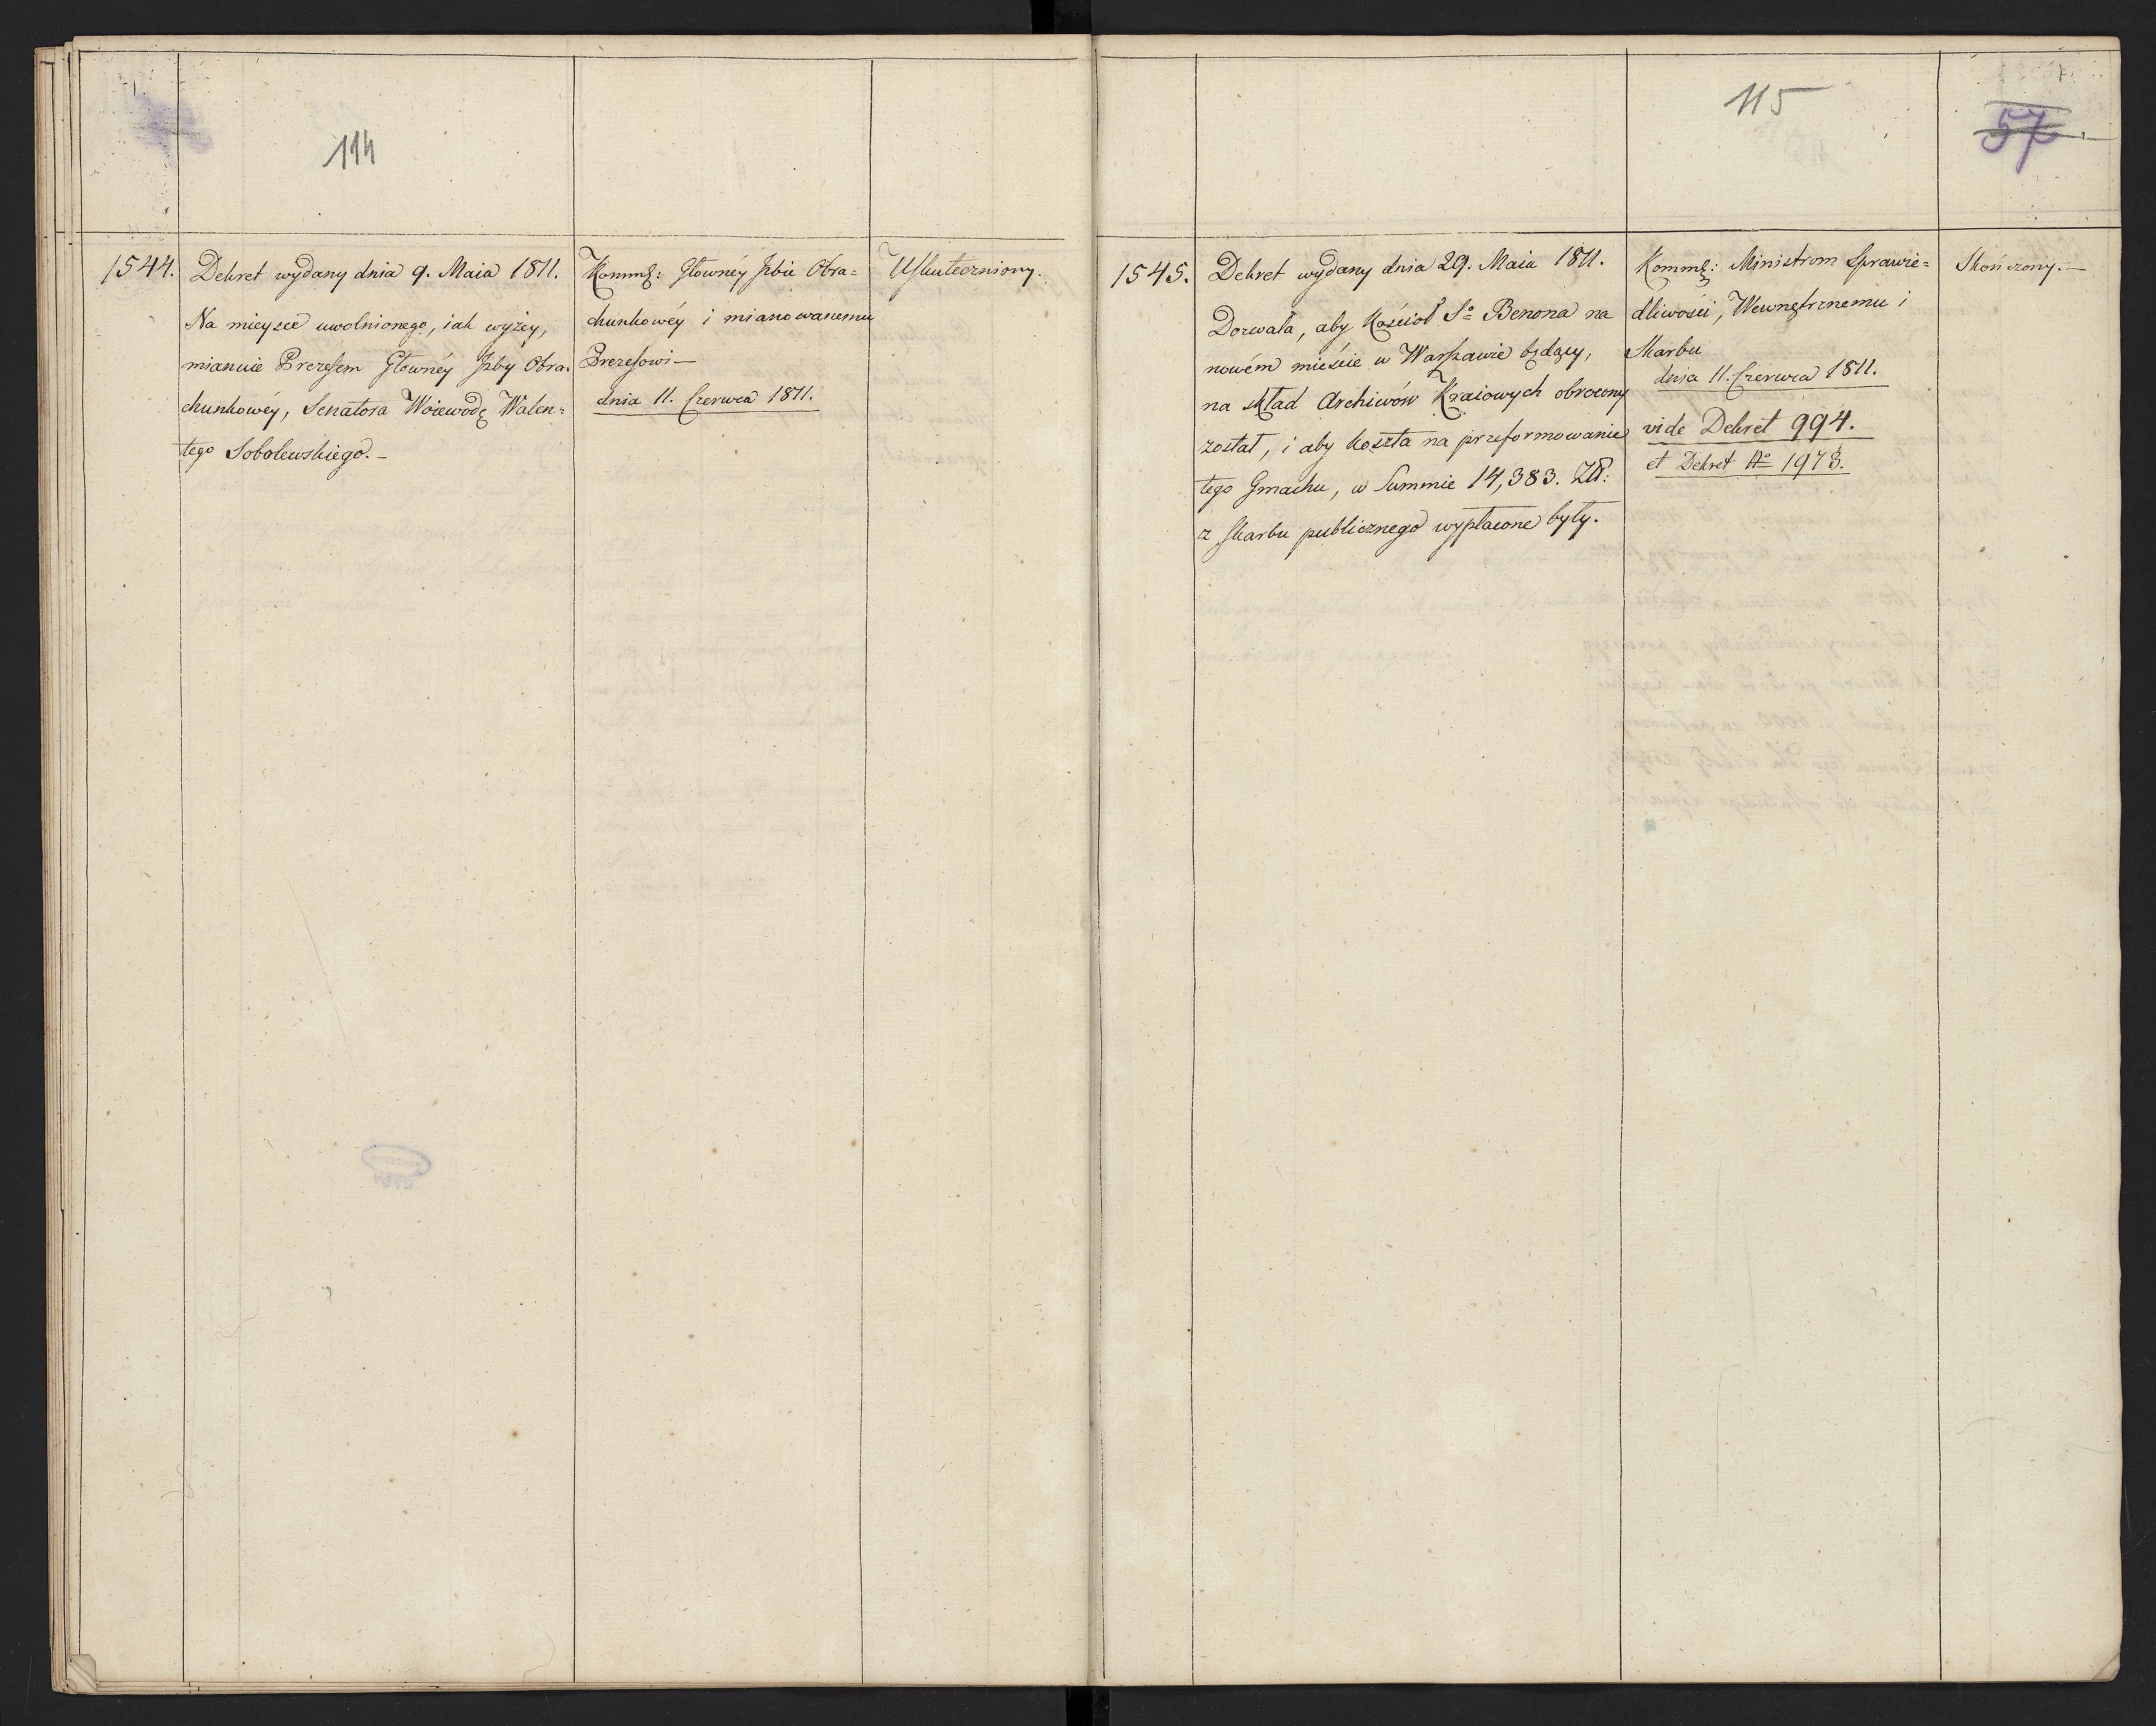 114
1544.
Dekret wydany dnia 9. Maia 1811.
Na mieysce uwolnionego, iak wyżey,
mianuie Prezesem Główney Izby Obra-
chunkowéy, Senatora Woiewodę Walen=
tego Sobolewskiego. –
Komm: Główney Izbie Obra=
chunkowéy i mianowanemu
Prezesowi –
dnia 11. Czerwca 1811.
Uskuteczniony.
115
57
1545.
Dekret wydany dnia 29. Maia 1811.
Dozwala, aby Kościoł Sº Benona na
nowém mieście w Warszawie będący,
na skład Archiwów Kraiowych obrocony
został, i aby koszta na przeformowanie
tego Gmachu, w Summie 14,383. Zł:
z skarbu publicznego wypłacone były.
Komm: Ministrom Sprawie=
dliwości, Wewnętrznemu i
Skarbu
dnia 11. Czerwca 1811.
vide Dekret 994.
et Dekret Nº 1973.
Skończony. –